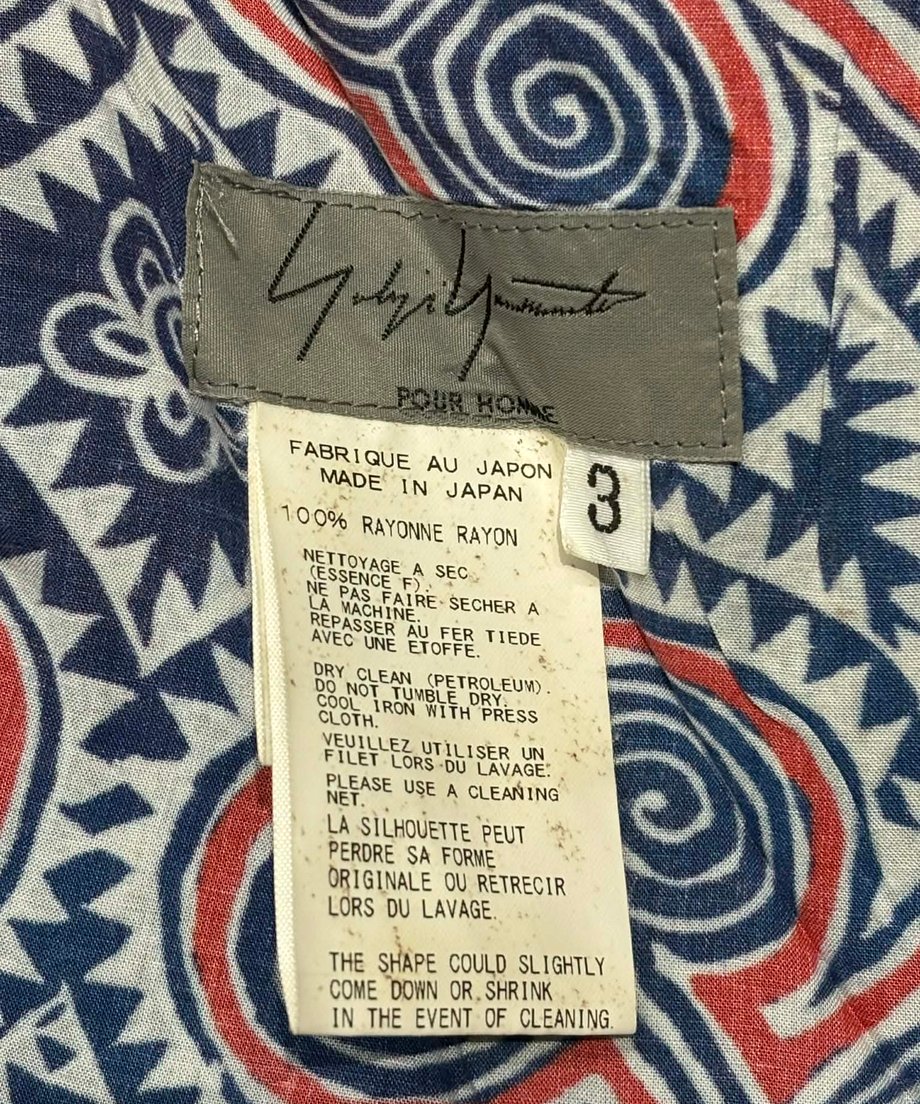 Yohji Yamamoto
POUR HOMME
FABRIQUE AU JAPON
MADE IN JAPAN
3
100% RAYONNE RAYON
NETTOYAGE A SEC
(ESSENCE F).
NE PAS FAIRE SECHER A
LA MACHINE.
REPASSER AU FER TIEDE
AVEC UNE ETOFFE.
DRY CLEAN (PETROLEUM).
DO NOT TUMBLE DRY.
COOL IRON WITH PRESS
CLOTH.
VEUILLEZ UTILISER UN
FILET LORS DU LAVAGE.
PLEASE USE A CLEANING
NET.
LA SILHOUETTE PEUT
PERDRE SA FORME
ORIGINALE OU RETRECIR
LORS DU LAVAGE.
THE SHAPE COULD SLIGHTLY
COME DOWN OR SHRINK
IN THE EVENT OF CLEANING.